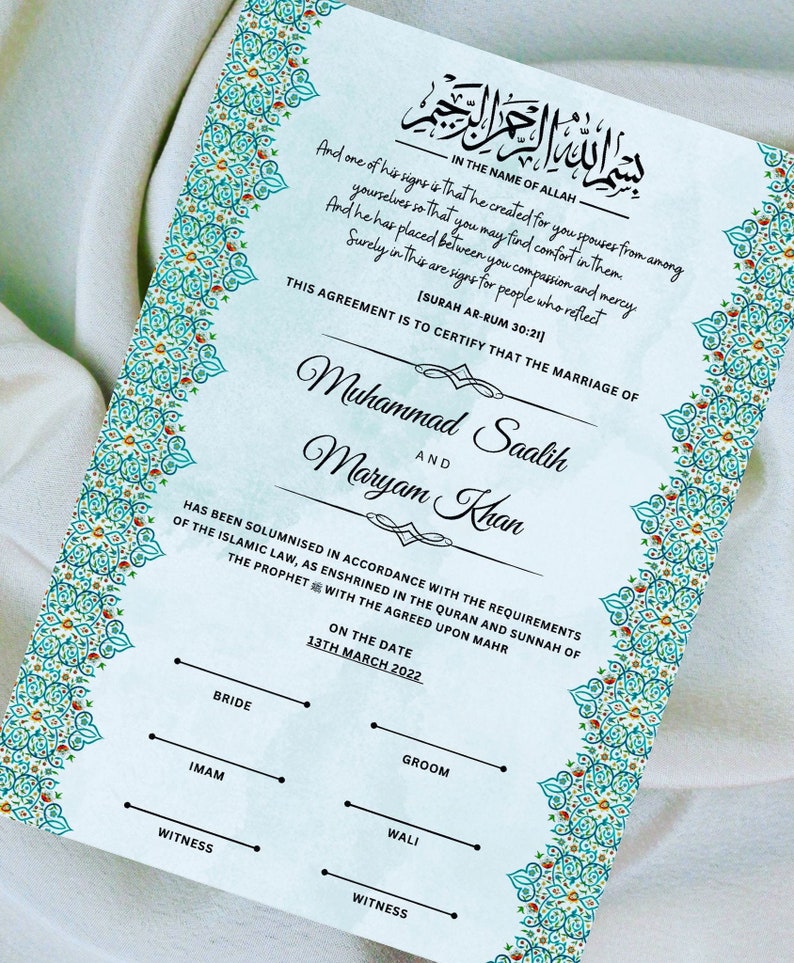 بِسْمِ اللهِ الرَّحْمٰنِ الرَّحِيْمِ
IN THE NAME OF ALLAH
And one of his signs is that he created for you spouses from among
yourselves so that you may find comfort in them.
And he has placed between you compassion and mercy
Surely in this are signs for people who reflect
[SURAH AR-RUM 30:21]
THIS AGREEMENT IS TO CERTIFY THAT THE MARRIAGE OF
Muhammad Saalih
AND
Maryam Khan
HAS BEEN SOLUMNISED IN ACCORDANCE WITH THE REQUIREMENTS
OF THE ISLAMIC LAW, AS ENSHRINED IN THE QURAN AND SUNNAH OF
THE PROPHET ﷺ WITH THE AGREED UPON MAHR
ON THE DATE
13TH MARCH 2022
BRIDE
GROOM
IMAM
WALI
WITNESS
WITNESS